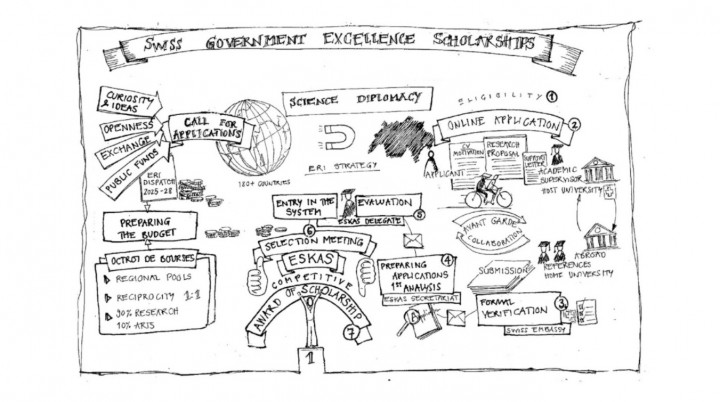 SWISS GOVERNMENT EXCELLENCE SCHOLARSHIPS
CURIOSITY
& IDEAS
OPENNESS
EXCHANGE
PUBLIC FUNDS
CALL FOR
APPLICATIONS
ERI
DISPATCH
2025-28
PREPARING
THE BUDGET
OCTROI DE BOURSES
REGIONAL POOLS
RECIPROCITY 1:1
90% RESEARCH
10% ARTS
180+ COUNTRIES
SCIENCE DIPLOMACY
ERI STRATEGY
ELIGIBILITY 1
ONLINE APPLICATION 2
APPLICANT
CV
MOTIVATION
RESEARCH
PROPOSAL
SUPPORT
LETTER
ACADEMIC
SUPERVISOR
HOST UNIVERSITY
AVANT GARDE
COLLABORATION
ABROAD
REFERENCES
HOME UNIVERSITY
SUBMISSION
FORMAL
VERIFICATION
3
SWISS EMBASSY
4
PREPARING
APPLICATIONS
1ST ANALYSIS
ESKAS SECRETARIAT
EVALUATION
ESKAS DELEGATE
5
ENTRY IN THE
SYSTEM
6
SELECTION MEETING
ESKAS
COMPETITIVE
AWARD OF SCHOLARSHIP
7
1